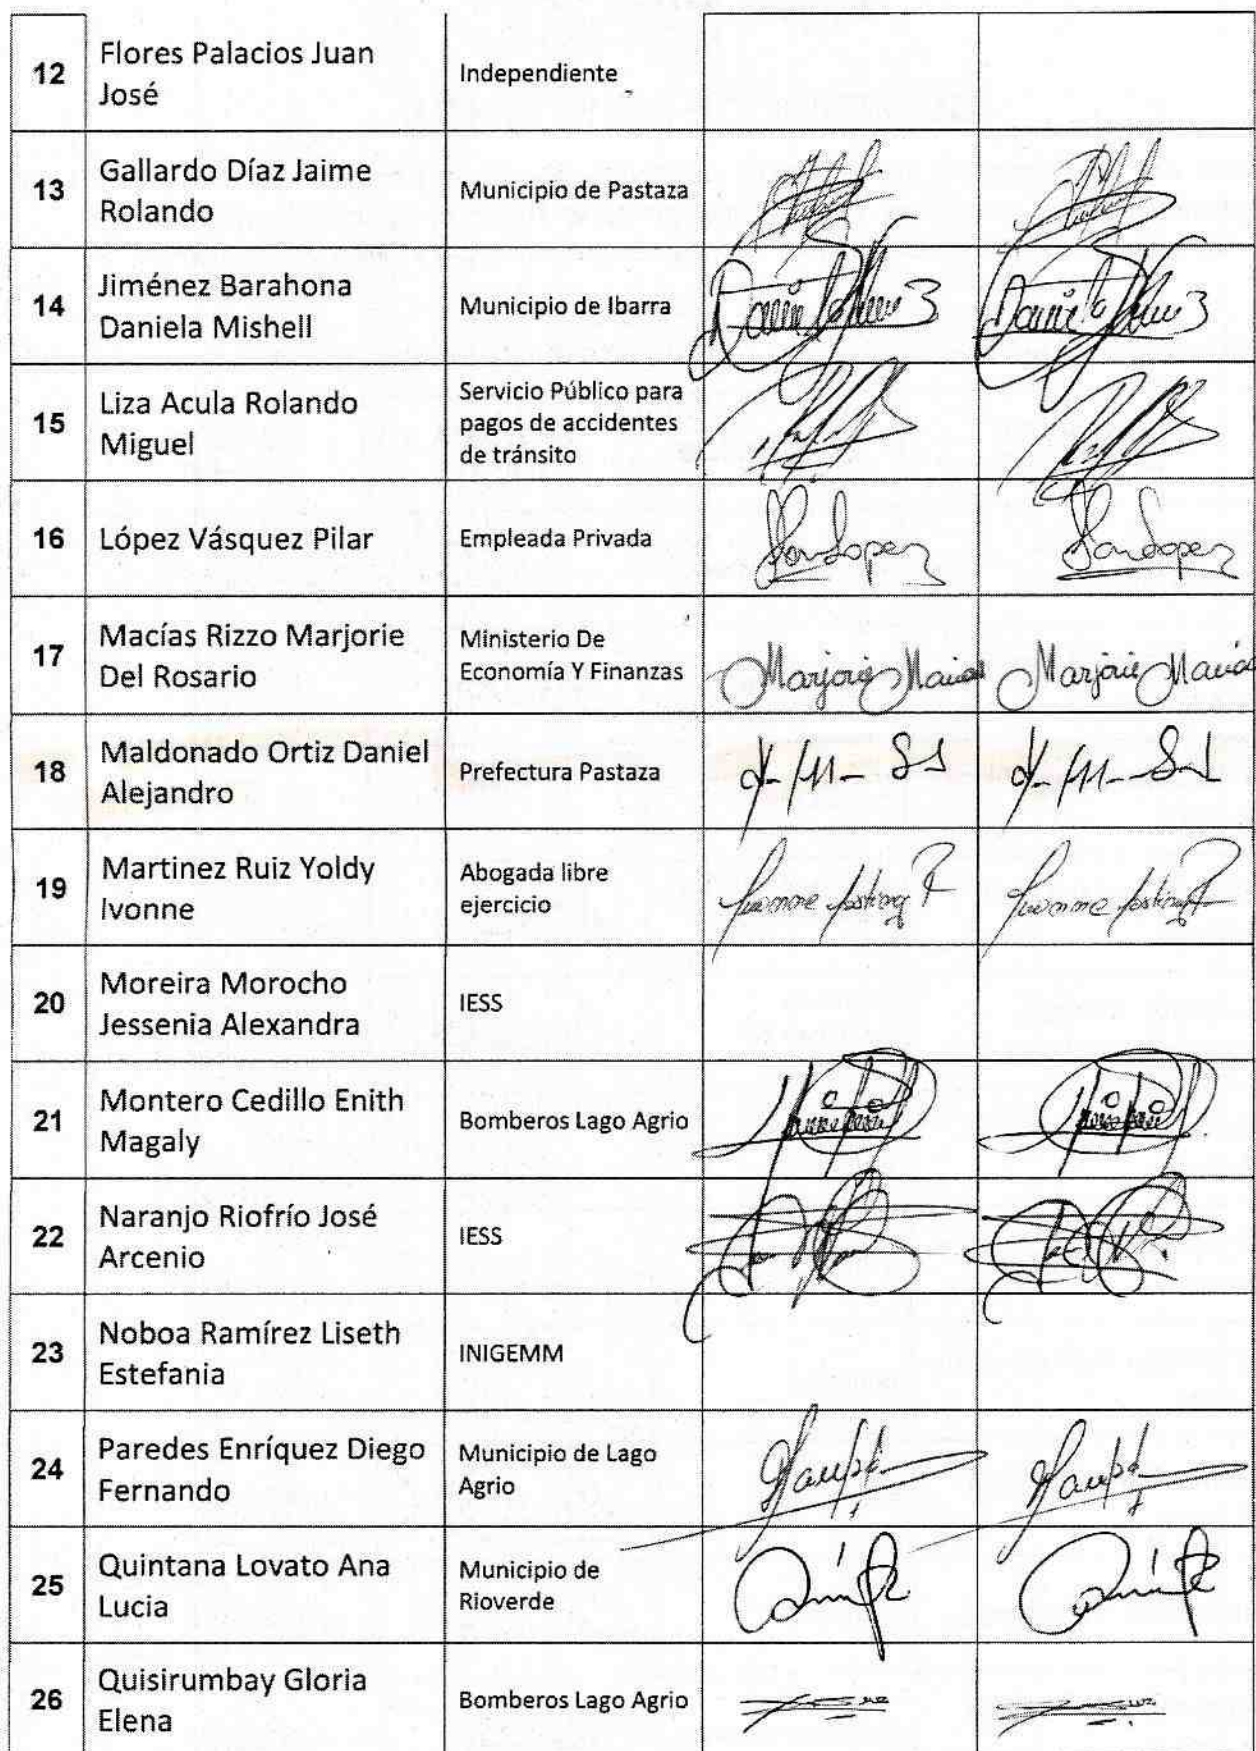 12
Flores Palacios Juan
José
Independiente
13
Gallardo Díaz Jaime
Rolando
Municipio de Pastaza
14
Jiménez Barahona
Daniela Mishell
Municipio de Ibarra
15
Liza Acula Rolando
Miguel
Servicio Público para
pagos de accidentes
de tránsito
16
López Vásquez Pilar
Empleada Privada
17
Macías Rizzo Marjorie
Del Rosario
Ministerio De
Economía Y Finanzas
Marjorie Macias Marjorie Macias
18
Maldonado Ortiz Daniel
Alejandro
Prefectura Pastaza
19
Martinez Ruiz Yoldy
Ivonne
Abogada libre
ejercicio
20
Moreira Morocho
Jessenia Alexandra
IESS
21
Montero Cedillo Enith
Magaly
Bomberos Lago Agrio
22
Naranjo Riofrío José
Arcenio
IESS
23
Noboa Ramírez Liseth
Estefania
INIGEMM
24
Paredes Enríquez Diego
Fernando
Municipio de Lago
Agrio
25
Quintana Lovato Ana
Lucia
Municipio de
Rioverde
26
Quisirumbay Gloria
Elena
Bomberos Lago Agrio